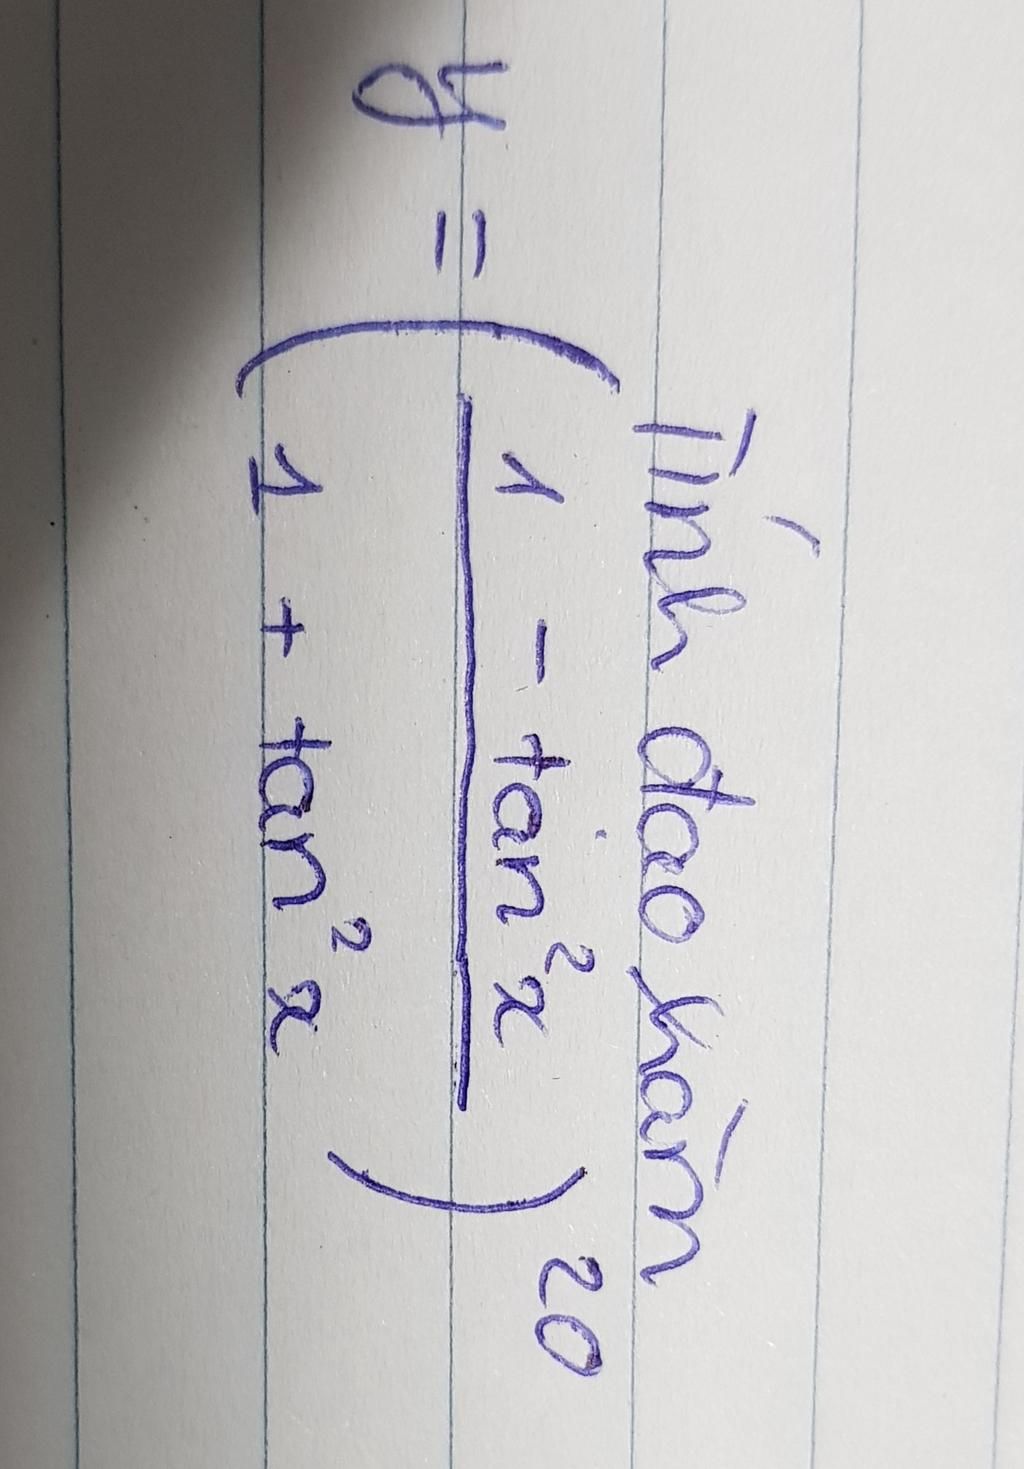 Tính đao hàm
y = ( (1 - tan²x) / (1 + tan²x) )²⁰